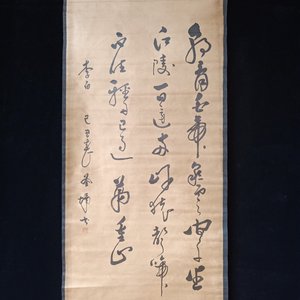 朝辭白帝彩雲間千里
江陵一日還兩岸猿聲啼
不住輕舟已過萬重山
李白 己丑春 书